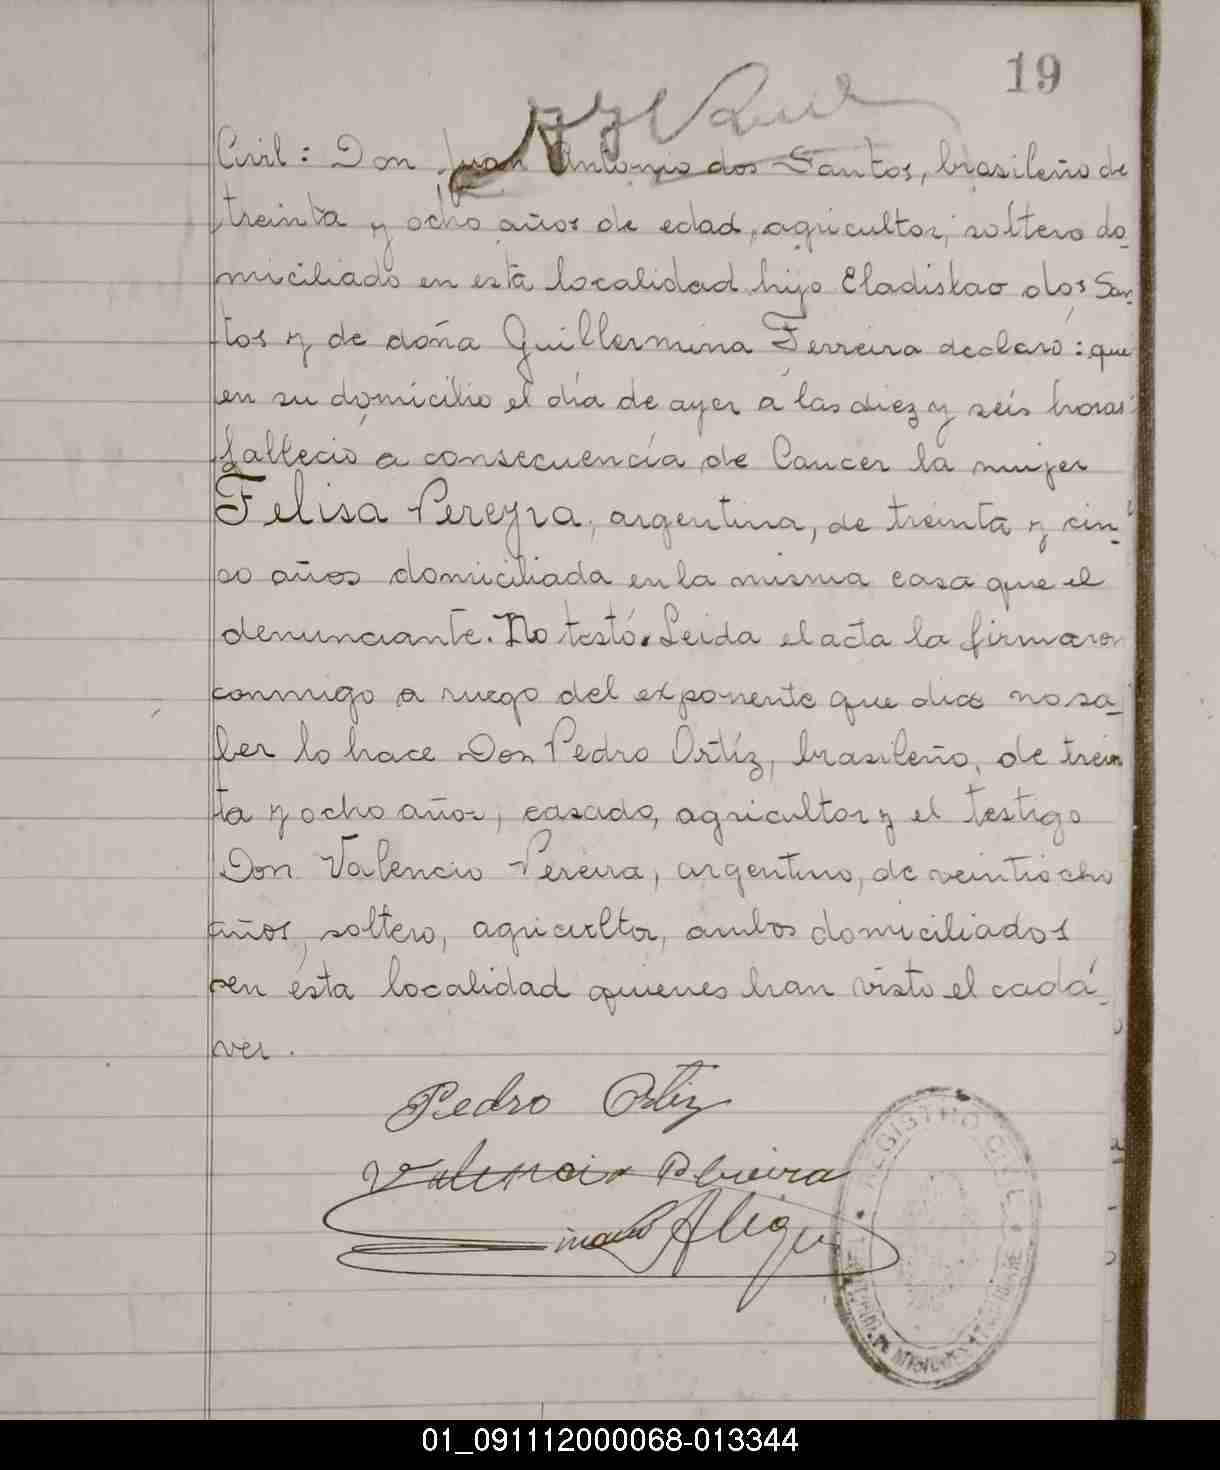 19
Civil: Don Juan Antonio dos Santos, brasileño de
treinta y ocho años de edad, agricultor, soltero do_
miciliado en esta localidad hijo Eladislao dos San_
tos y de doña Guillermina Ferreira declaró: que
en su domicilio el día de ayer a las diez y seis horas
falleció a consecuencía de Cancer la mujer
Felisa Pereyra, argentina, de treinta y cin_
co años domiciliada en la misma casa que el
denunciante. No testó. Leida el acta la firmaron
conmigo a ruego del exponente que dice no sa_
ber lo hace Don Pedro Ortíz, brasileño, de trein
ta y ocho años, casado, agricultor y el testigo
Don Valencio Pereira, argentino, de veintiocho
años, soltero, agricultor, ambos domiciliados
en ésta localidad quienes han visto el cadá_
ver.
Pedro Ortiz
Valencio Pereira
REGISTRO CIVIL
MISIONES
01_091112000068-013344